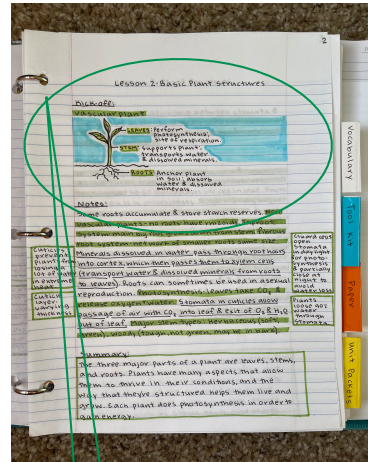 2
Lesson 2-Basic Plant Structures
Kick-off:
Vascular plant
LEAVES: Perform
photosynthesis;
site of respiration.
STEM: Supports plant;
transports water
& dissolved minerals.
ROOTS: Anchor plant
in soil; absorb
water & dissolved
minerals.
Notes:
Some roots accumulate & store starch reserves. Non
vascular plants: no roots, have rhizoids. Taproot
system: main big root
root system: network of smaller same size
Minerals dissolved in water pass through root hairs
into cortex, which then passes them to xylem cells
(transport water & dissolved minerals from roots
to leaves). Roots can sometimes be used in asexual
reproduction. Photosynthesis: leaves take CO2 &
release oxygen & water. Stomata in cuticles allow
passage of air with CO2 into leaf & exit of O2 & H2O
out of leaf. Major stem types: Herbaceous (soft,
green), woody (tough, not green, may be in bark)
Cuticles
prevent
plant from
losing a
lot of water
in extreme
heat
Cuticle
layer:
varying
thickness
Guard cells
open
stomata
in daylight
for photo-
synthesis
& partially
close at
night to
avoid
water loss
Plants
loose 90%
water
through
stomata
Summary:
The three major parts of a plant are leaves, stems,
and roots. Plants have many aspects that allow
them to thrive in their conditions, and the
way that they're structured helps them live and
grow. Each plant does photosynthesis in order to
gain energy.
Vocabulary
Tool Kit
Paper
Unit Packets